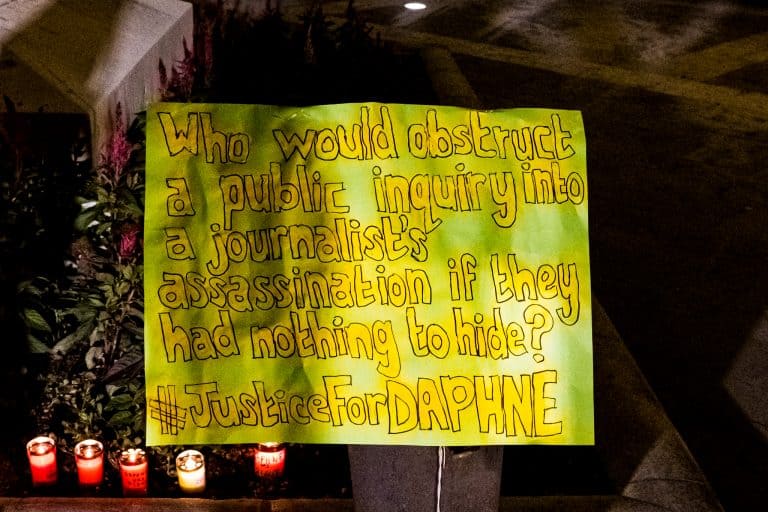 Who would obstruct
a public inquiry into
a journalist's
assassination if they
had nothing to hide?
#JusticeForDAPHNE